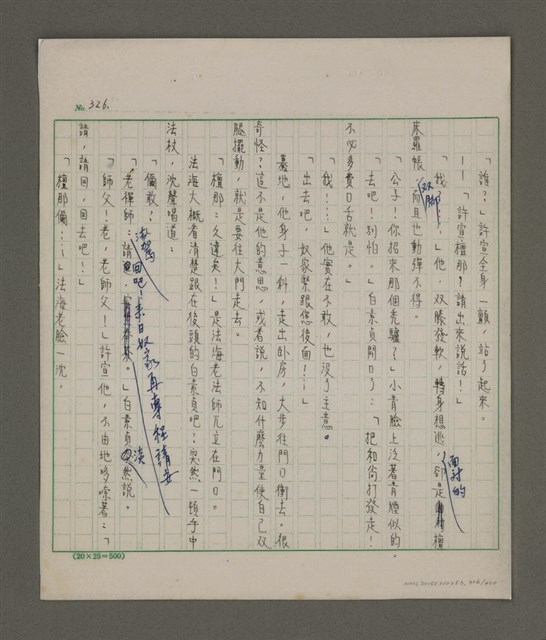 No. 326.
「誰？」許宣全身一顫，站了起來。
——「許宣檀那？請出來說話！」
「我？！」他，双膝發軟，轉身想逃，卻是面對的檀
床羅帳，双腳而且也動彈不得。
「公子！你招來那個禿驢？」小青臉上泛著青煙似的。
「去吧！別怕。」白素貞開口了：「把和尚打發走！
不必多費口舌就是。」
「我！……」他實在不敢，也沒了主意。
「出去吧，奴家緊跟您後面！…」
驀地，他身子一斜，走出卧房，大步往門口衝去。很
奇怪？這不是他的意思，或者說，不知什麼力量使自己双
腿擺動，就是要往大門走去。
「檀那：久違矣！」是法海老法師兀立在門口。
法海大概看清楚跟在後頭的白素貞吧？突然一頓手中
法杖，沈聲唱道：
「儞敢？」
「老禪師：請澉駕回吧！來日奴家再專程請安。」白素貞淡然說。
「師父！老，老師父！」許宣他，不由地哆嗦著：「
請，請回，回去吧！」
「檀那儞…！」法海老臉一沈。
(20×25=500)